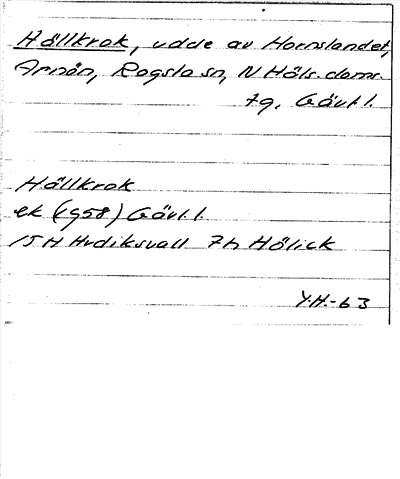 Hällkrok, udde av Hornslandet,
Arnön, Rogsta sn, N Häls. doms.
tg, Gävl. l.
Hällkrok
ek (1958) Gävl. l.
15H Hudiksvall 7h Hölick
Y.H.-63